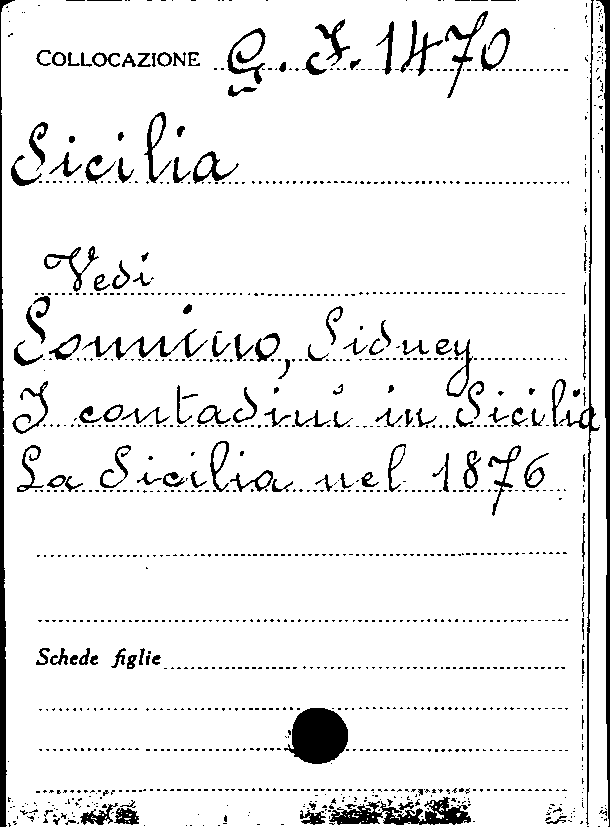 COLLOCAZIONE G. I. 1470
Sicilia
Vedi
Sonnino, Sidney
I contadini in Sicilia
La Sicilia nel 1876
Schede figlie